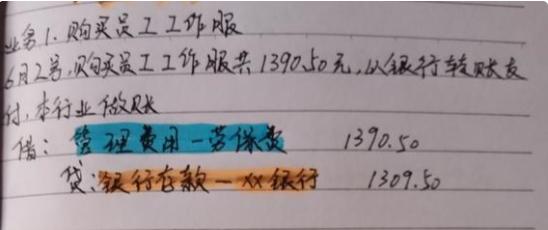 业务1. 购买员工工作服
6月2号,购买员工工作服共1390.50元,从银行转账支
付,本行业做账
借: 管理费用—劳保费 1390.50
贷:银行存款—XX银行 1309.50